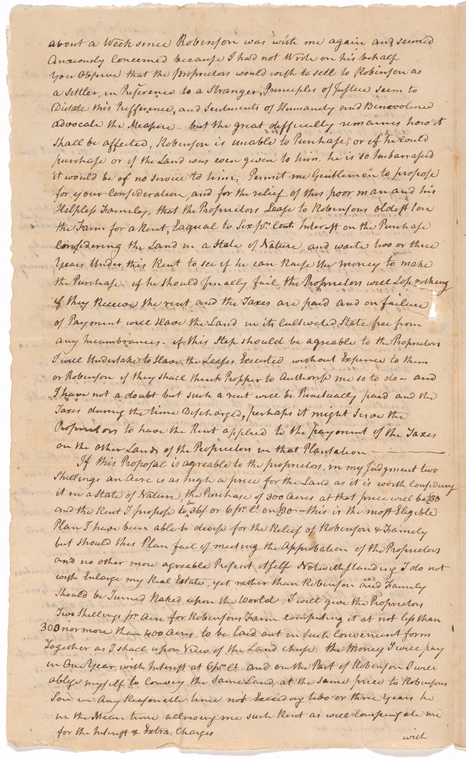 about a Week since Robinson was with me again and seemed
Anxiously Concerned because I had not Wrote on his behalf
You Observe that the Proprietors would wish to sell to Robinson as
a Settler, in Preference to a Stranger, Principles of Justice seem to
Dictate this Preference, and Sentiments of Humanity and Benevolence
advocate the Measure – but the great difficulty remains how it
Shall be affected, Robinson is unable to Purchase, or if he could
purchase or if the Land was even given to him, he is so Imbarrased
it would be of no Service to him, Permit me Gentlemen to propose
for your Consideration, and for the relief of this poor man and his
Helpless Family, that the Proprietors Lease to Robinsons oldest Son
the Farm for a Rent, Eaqual to Six pr. Cent Interest on the Purchase
Considering the Land in a State of Nature, and waite two or three
Years Under this Rent to see if he can Raise the money to make
the Purchase if he should finally fail, the Proprietors will Lose nothing
if they Receive the rent, and the Taxes are paid and on failure
of Payment will Have the Land in its Cultivated State free from
any Incumbrances – if this Step should be agreable to the Proprietors
I will Undertake to Have the Leases Executed without Expence to them
or Robinson if they shall think Propper to Authorise me so to do – and
I have not a doubt but such a rent will be Punctually paid and the
Taxes during the time Discharged, perhaps it might serve the
Proprietors to have the Rent applied to the payment of the Taxes
on the other Lands of the Proprietors in that Plantation
If this Proposal is agreable to the proprietors, in my Judgment two
Shillings an Acre is as high a price for the Land as it is worth Considering
it in a State of Nature, the Purchase of 300 Acres at that price will be £30
and the Rent I propose is 36/ or 6 pr. Ct. on £30 – this is the most Eligible
Plan I have been able to devise for the Relief of Robinson & Family
but should this Plan fail of meeting the Approbation of the Proprietors
and no other more agreable Present itself Notwithstanding I do not
wish Enlarge my Real Estate, yet rather than Robinson and Family
Should be Turned Naked upon the World, I will give the Proprietors
Two Shillings pr. Acre for Robinsons Farm computing it at not less than
300 nor more than 400 Acres to be laid out in such Convenient form
Together as I shall upon View of the Land chuse the Money I will pay
in One Year, with Interest at 6 pr. Ct. and on the Part of Robinson I will
oblige myself to Convey the Same Land, at the same price to Robinsons
Son in Any Reasonable time not Exceeding two or three years he
in the Mean time allowing me such Rent as will compensate me
for the Interest & Extra Charges
with